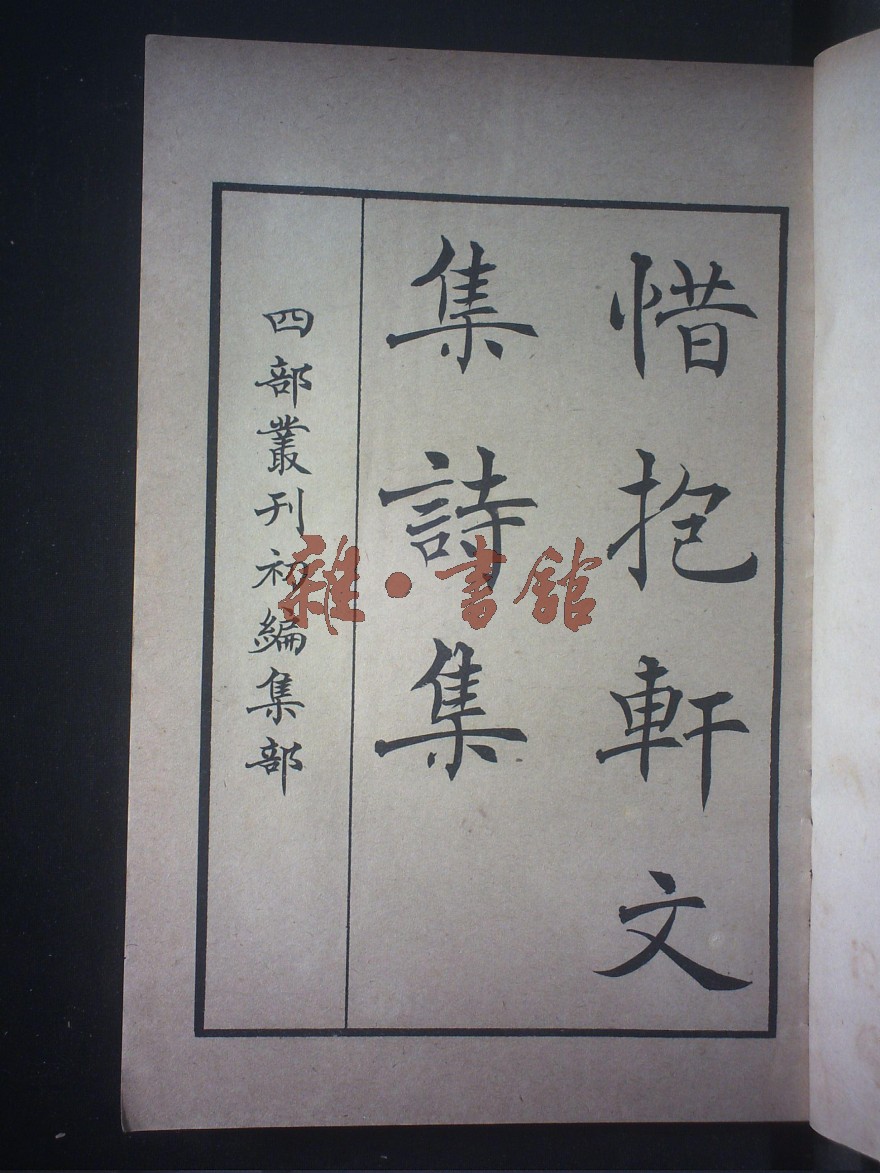 惜抱軒文
集詩集
四部叢刊初編集部
雜·書館